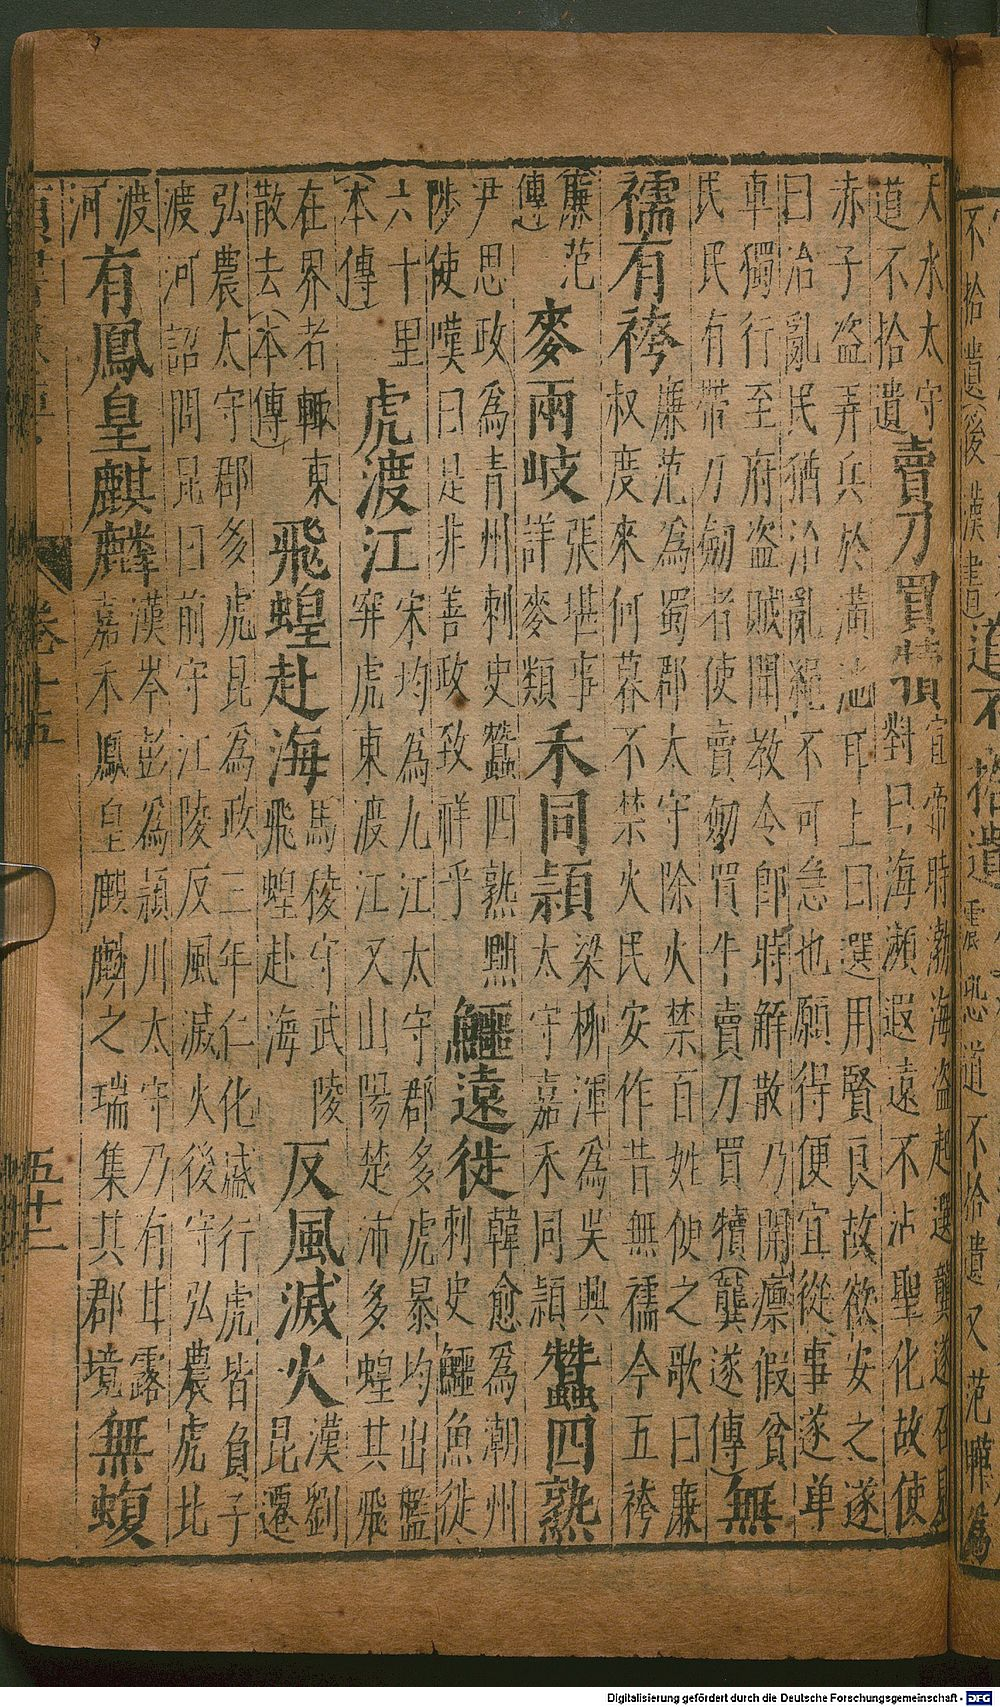 不拾遺(後漢書)道不拾遺
道不拾遺又范曄為
天水太守
道不拾遺
賣刀買犢
宣帝時渤海盜起選龔遂召見
對曰海瀕遐遠不沾聖化故使
赤子盜弄兵於潢池耳上曰選用賢良故欲安之遂
曰治亂民猶治亂繩不可急也願得便宜從事遂單
車獨行至府盜賊聞教令即時解散乃開廩假貧
民民有帶刀劒者使賣劒買牛賣刀買犢(龔遂傳)
無
襦有袴
廉范為蜀郡太守除火禁百姓便之歌曰廉
叔度來何暮不禁火民安作昔無襦今五袴
(廉范
傳)
麥兩岐
張堪事
詳麥類
禾同頴
梁柳渾為吳興
太守嘉禾同頴
蠶四熟
尹思政為青州刺史蠶四熟黜
陟使嘆曰是非善政致祥乎
鱷遠徙
韓愈為潮州
刺史鱷魚徙
六十里
(本傳)
虎渡江
宋均為九江太守郡多虎暴均出檻
穽虎東渡江又山陽楚沛多蝗其飛
在界者輙東
散去(本傳)
飛蝗赴海
馬稜守武陵
飛蝗赴海
反風滅火
漢劉
昆遷
弘農太守郡多虎昆為政三年仁化盛行虎皆負子
渡河詔問昆曰前守江陵反風滅火後守弘農虎北
渡
河
有鳳皇麒麟
漢岑彭為頴川太守乃有甘露
嘉禾鳳皇麒麟之瑞集其郡境
無蝮
卷十五
五十二
Digitalisierung gefördert durch die Deutsche Forschungsgemeinschaft - DFG